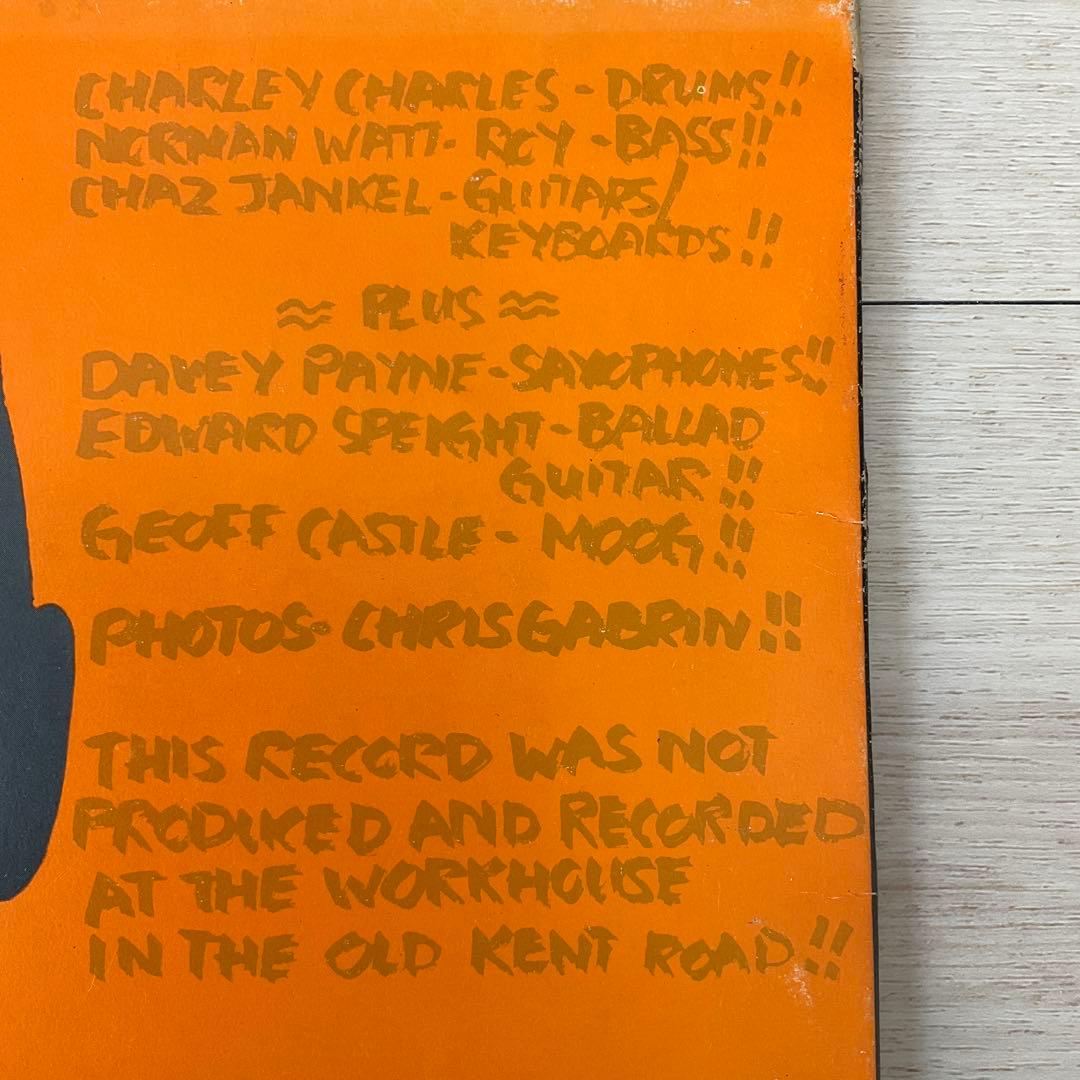 CHARLEY CHARLES - DRUMS!!
NORMAN WATT- ROY - BASS!!
CHAZ JANKEL - GUITARS/
KEYBOARDS!!
≈ PLUS ≈
DAVEY PAYNE - SAXOPHONES!!
EDWARD SPEIGHT - BALLAD
GUITAR!!
GEOFF CASTLE - MOOG!!
PHOTOS - CHRIS GABRIN!!
THIS RECORD WAS NOT
PRODUCED AND RECORDED
AT THE WORKHOUSE
IN THE OLD KENT ROAD!!